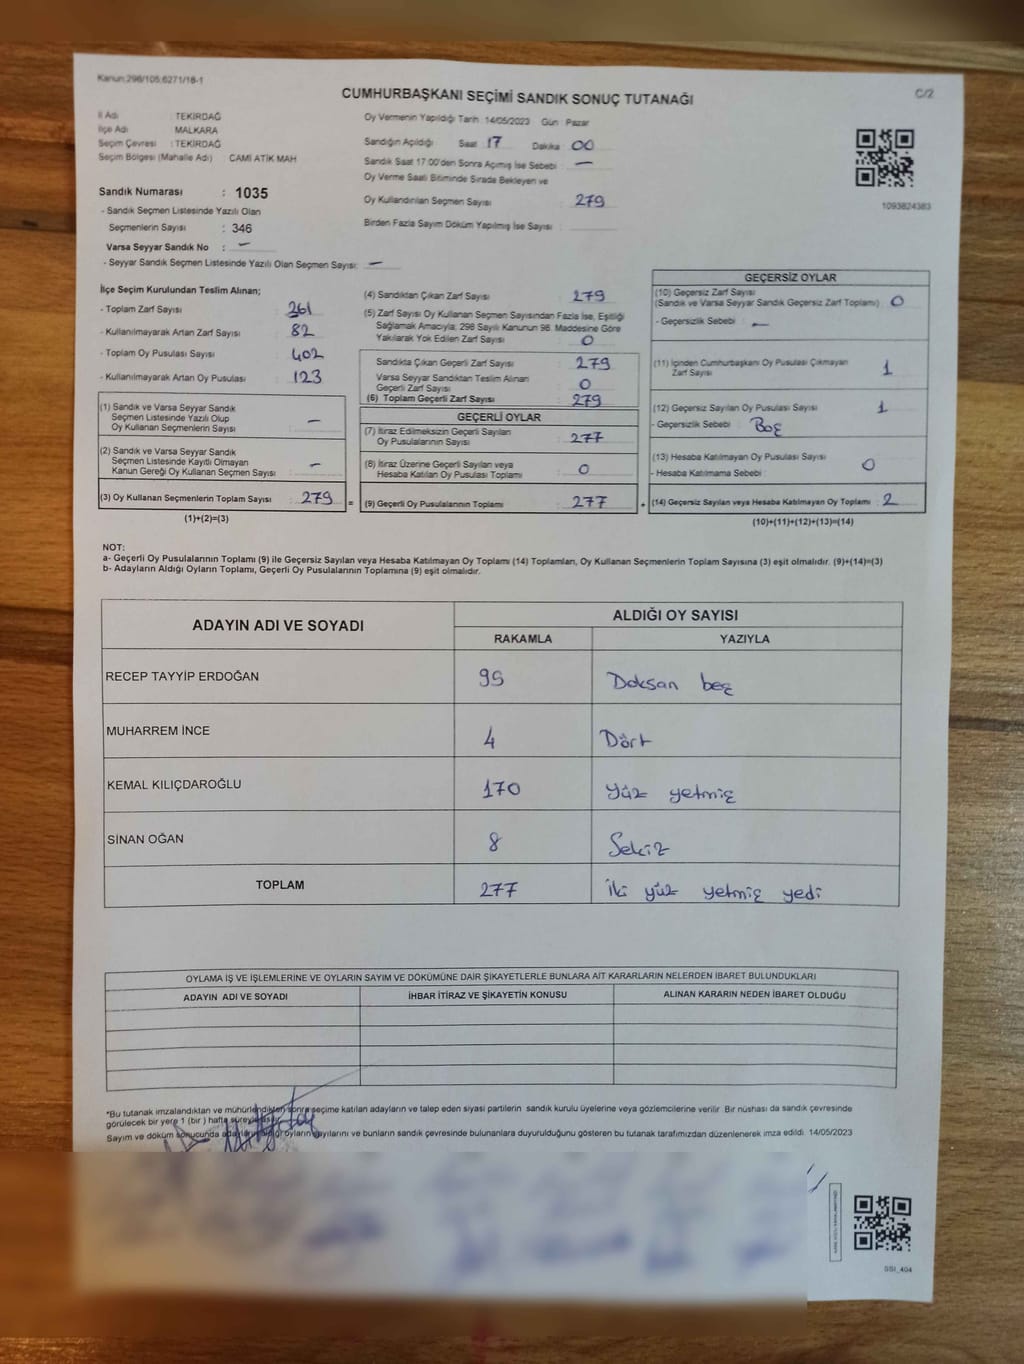 Kanun:298/105;6271/18-1
C/2
CUMHURBAŞKANI SEÇİMİ SANDIK SONUÇ TUTANAĞI
İl Adı : TEKİRDAĞ
İlçe Adı : MALKARA
Seçim Çevresi : TEKİRDAĞ
Seçim Bölgesi (Mahalle Adı) CAMİ ATİK MAH
Sandık Numarası : 1035
- Sandık Seçmen Listesinde Yazılı Olan
Seçmenlerin Sayısı : 346
Varsa Seyyar Sandık No : —
- Seyyar Sandık Seçmen Listesinde Yazılı Olan Seçmen Sayısı: —
Oy Vermenin Yapıldığı Tarih 14/05/2023 Gün Pazar
Sandığın Açıldığı Saat 17 Dakika 00
Sandık Saat 17:00'den Sonra Açılmış İse Sebebi : —
Oy Verme Saati Bitiminde Sırada Bekleyen ve
Oy Kullandırılan Seçmen Sayısı : 279
Birden Fazla Sayım Döküm Yapılmış İse Sayısı :
1093824383
İlçe Seçim Kurulundan Teslim Alınan;
- Toplam Zarf Sayısı : 361
- Kullanılmayarak Artan Zarf Sayısı : 82
- Toplam Oy Pusulası Sayısı : 402
- Kullanılmayarak Artan Oy Pusulası : 123
(1) Sandık ve Varsa Seyyar Sandık
Seçmen Listesinde Yazılı Olup
Oy Kullanan Seçmenlerin Sayısı : —
(2) Sandık ve Varsa Seyyar Sandık
Seçmen Listesinde Kayıtlı Olmayan
Kanun Gereği Oy Kullanan Seçmen Sayısı : —
(3) Oy Kullanan Seçmenlerin Toplam Sayısı : 279 =
(1)+(2)=(3)
(4) Sandıktan Çıkan Zarf Sayısı : 279
(5) Zarf Sayısı Oy Kullanan Seçmen Sayısından Fazla İse, Eşitliği
Sağlamak Amacıyla, 298 Sayılı Kanunun 98. Maddesine Göre
Yakılarak Yok Edilen Zarf Sayısı : 0
Sandıkta Çıkan Geçerli Zarf Sayısı : 279
Varsa Seyyar Sandıktan Teslim Alınan
Geçerli Zarf Sayısı : 0
(6) Toplam Geçerli Zarf Sayısı : 279
GEÇERLİ OYLAR
(7) İtiraz Edilmeksizin Geçerli Sayılan
Oy Pusulalarının Sayısı : 277
(8) İtiraz Üzerine Geçerli Sayılan veya
Hesaba Katılan Oy Pusulası Toplamı : 0
(9) Geçerli Oy Pusulalarının Toplamı : 277 +
GEÇERSİZ OYLAR
(10) Geçersiz Zarf Sayısı
(Sandık ve Varsa Seyyar Sandık Geçersiz Zarf Toplamı) : 0
- Geçersizlik Sebebi : —
(11) İçinden Cumhurbaşkanı Oy Pusulası Çıkmayan
Zarf Sayısı : 1
(12) Geçersiz Sayılan Oy Pusulası Sayısı : 1
- Geçersizlik Sebebi : Boş
(13) Hesaba Katılmayan Oy Pusulası Sayısı : 0
- Hesaba Katılmama Sebebi :
(14) Geçersiz Sayılan veya Hesaba Katılmayan Oy Toplamı : 2
(10)+(11)+(12)+(13)=(14)
NOT:
a- Geçerli Oy Pusulalarının Toplamı (9) ile Geçersiz Sayılan veya Hesaba Katılmayan Oy Toplamı (14) Toplamları, Oy Kullanan Seçmenlerin Toplam Sayısına (3) eşit olmalıdır. (9)+(14)=(3)
b- Adayların Aldığı Oyların Toplamı, Geçerli Oy Pusulalarının Toplamına (9) eşit olmalıdır.
ADAYIN ADI VE SOYADI ALDIĞI OY SAYISI
RAKAMLA YAZIYLA
RECEP TAYYİP ERDOĞAN 95 Doksan beş
MUHARREM İNCE 4 Dört
KEMAL KILIÇDAROĞLU 170 Yüz yetmiş
SİNAN OĞAN 8 Sekiz
TOPLAM 277 İki yüz yetmiş yedi
OYLAMA İŞ VE İŞLEMLERİNE VE OYLARIN SAYIM VE DÖKÜMÜNE DAİR ŞİKAYETLERLE BUNLARA AİT KARARLARIN NELERDEN İBARET BULUNDUKLARI
ADAYIN ADI VE SOYADI İHBAR İTİRAZ VE ŞİKAYETİN KONUSU ALINAN KARARIN NEDEN İBARET OLDUĞU
*Bu tutanak imzalandıktan ve mühürlendikten sonra seçime katılan adayların ve talep eden siyasi partilerin sandık kurulu üyelerine veya gözlemcilerine verilir. Bir nüshası da sandık çevresinde
görülecek bir yere 1 (bir) hafta süreyle
Sayım ve döküm sonucunda oyların sayılarını ve bunların sandık çevresinde bulunanlara duyurulduğunu gösteren bu tutanak tarafımızdan düzenlenerek imza edildi. 14/05/2023
SSI_404